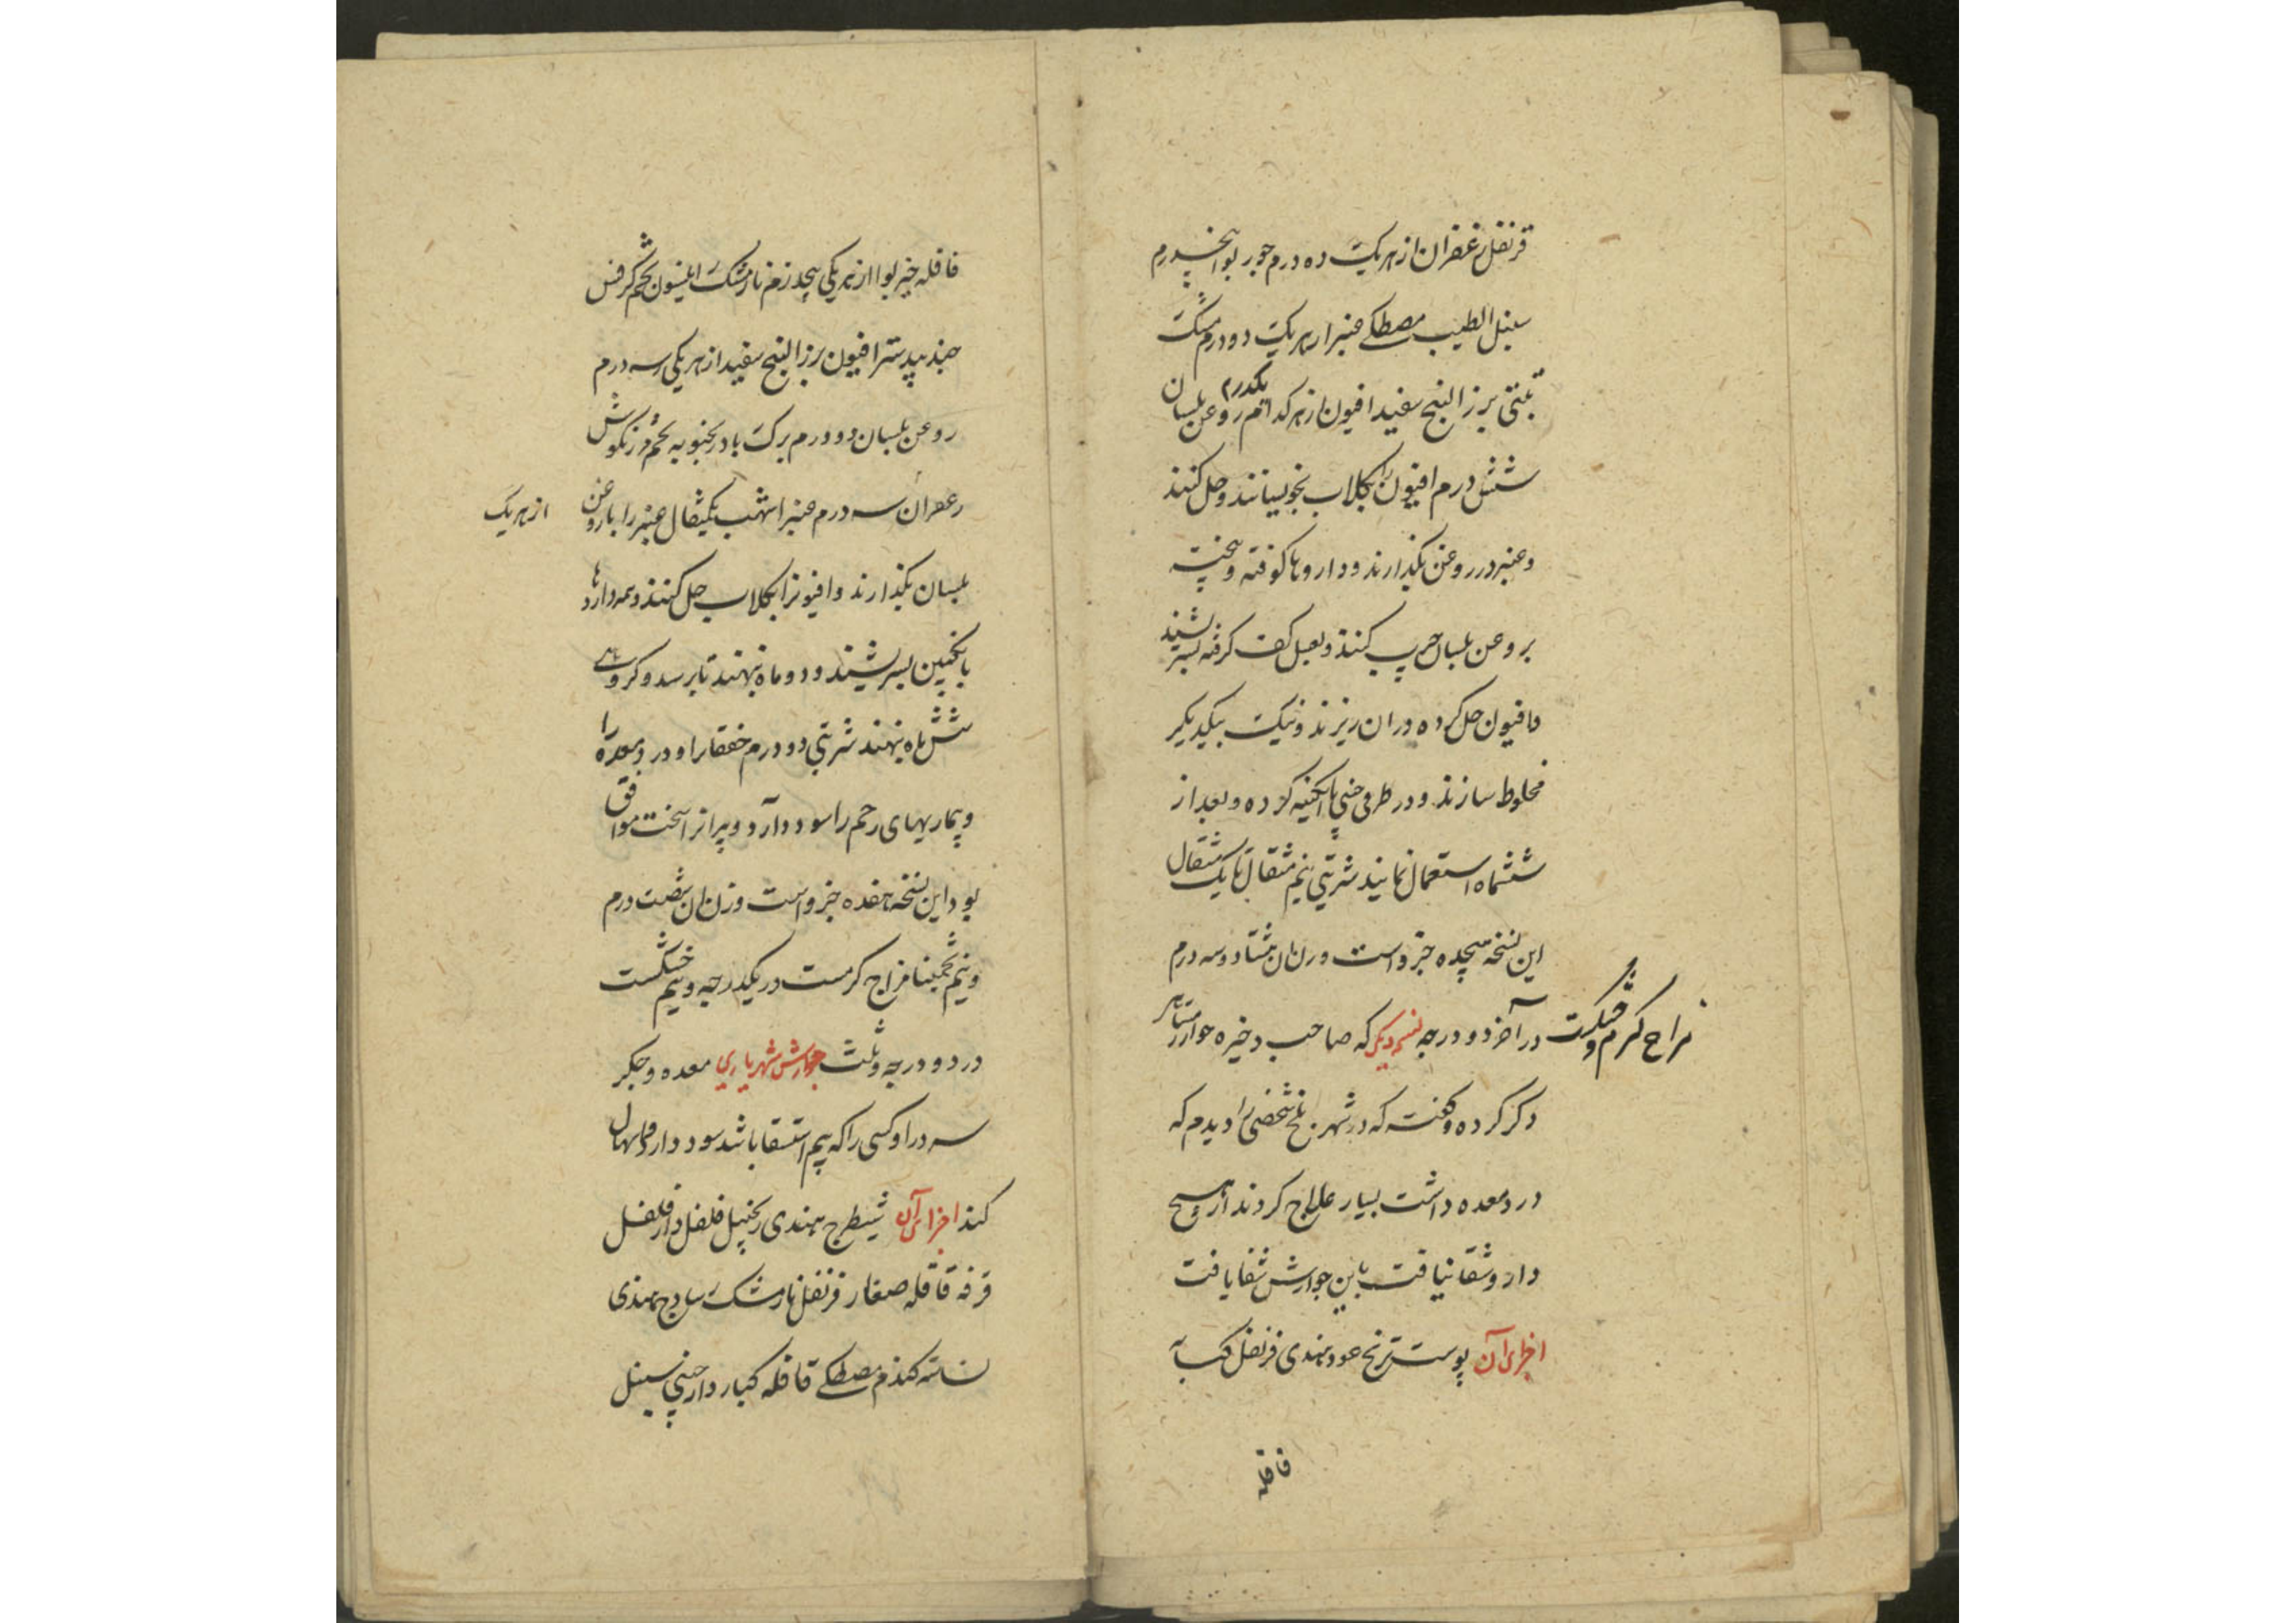 قرنفل زعفران از هر یک ده درم جوز بوا پنجدرم
سنبل الطیب مصطکی عنبر از هر یک دو درم مشک
تبتی بزر البنج سفید افیون از هر کدام یکدرم روغن بلسان
شش درم افیون را بکلاب بخویسانند و حل کنند
و عنبر در روغن بکدارند و داروها کوفته و بیخته
بروغن بلسان چرب کنند و بعسل کف کرفته بسرشند
و افیون حل کرده در ان ریزند و نیک بیکدیکر
مخلوط سازند و در ظرف چینی یا ابکینه کرده و بعد از
ششماه استعمال نمایند شربتی نیم مثقال تا یک مثقال
این نسخه هیجده جزو است وزن ان هشتاد و سه درم
مزاج کرم و خشکست در آخر دو درجه نسخه دیکر که صاحب ذخیره خوارزمشاهی
ذکر کرده و کفته که در شهر بلخ شخصی را دیدم که
درد معده داشت بسیار علاج کردند از هیچ
دارو شفا نیافت باین جوارش شفا یافت
اجزای آن پوست ترنج عود هندی قرنفل کبابه
قاقله
قاقله خیربوا از هر یکی پنجدرم نارمشک انیسون تخم کرفس
جندبیدستر افیون بزر البنج سفید از هر یکی سه درم
روغن بلسان دو درم برک بادرنجبویه تخم مرزنکوش
زعفران سه درم عنبر اشهب یکمثقال عنبر را با روغن
از هر یک
بلسان بکذارند و افیونرا بکلاب حل کنند و همه داروها
بانکبین بسرشند و دو ماه بنهند تا برسد و کروهی
شش ماه بنهند شربتی دو درم خفقانرا و درد معده را
و بیماریهای رحم را سود دارد و پیرانرا سخت موافق
بود این نسخه هفده جزو است وزن ان شصت درم
و نیم تخمینا مزاج کرمست در یکدرجه و نیم خشکست
در دو درجه و ثلث جوارش شهریاری معده و جکر
سرد را و کسی را که بیم استسقا باشد سود دارد و اسهال
کند اجزای آن شیطرج هندی زنجبیل فلفل دارفلفل
قرفه قاقله صغار قرنفل نارمشک ساذج هندی
نشاسته کندم مصطکی قاقله کبار دارچینی سنبل